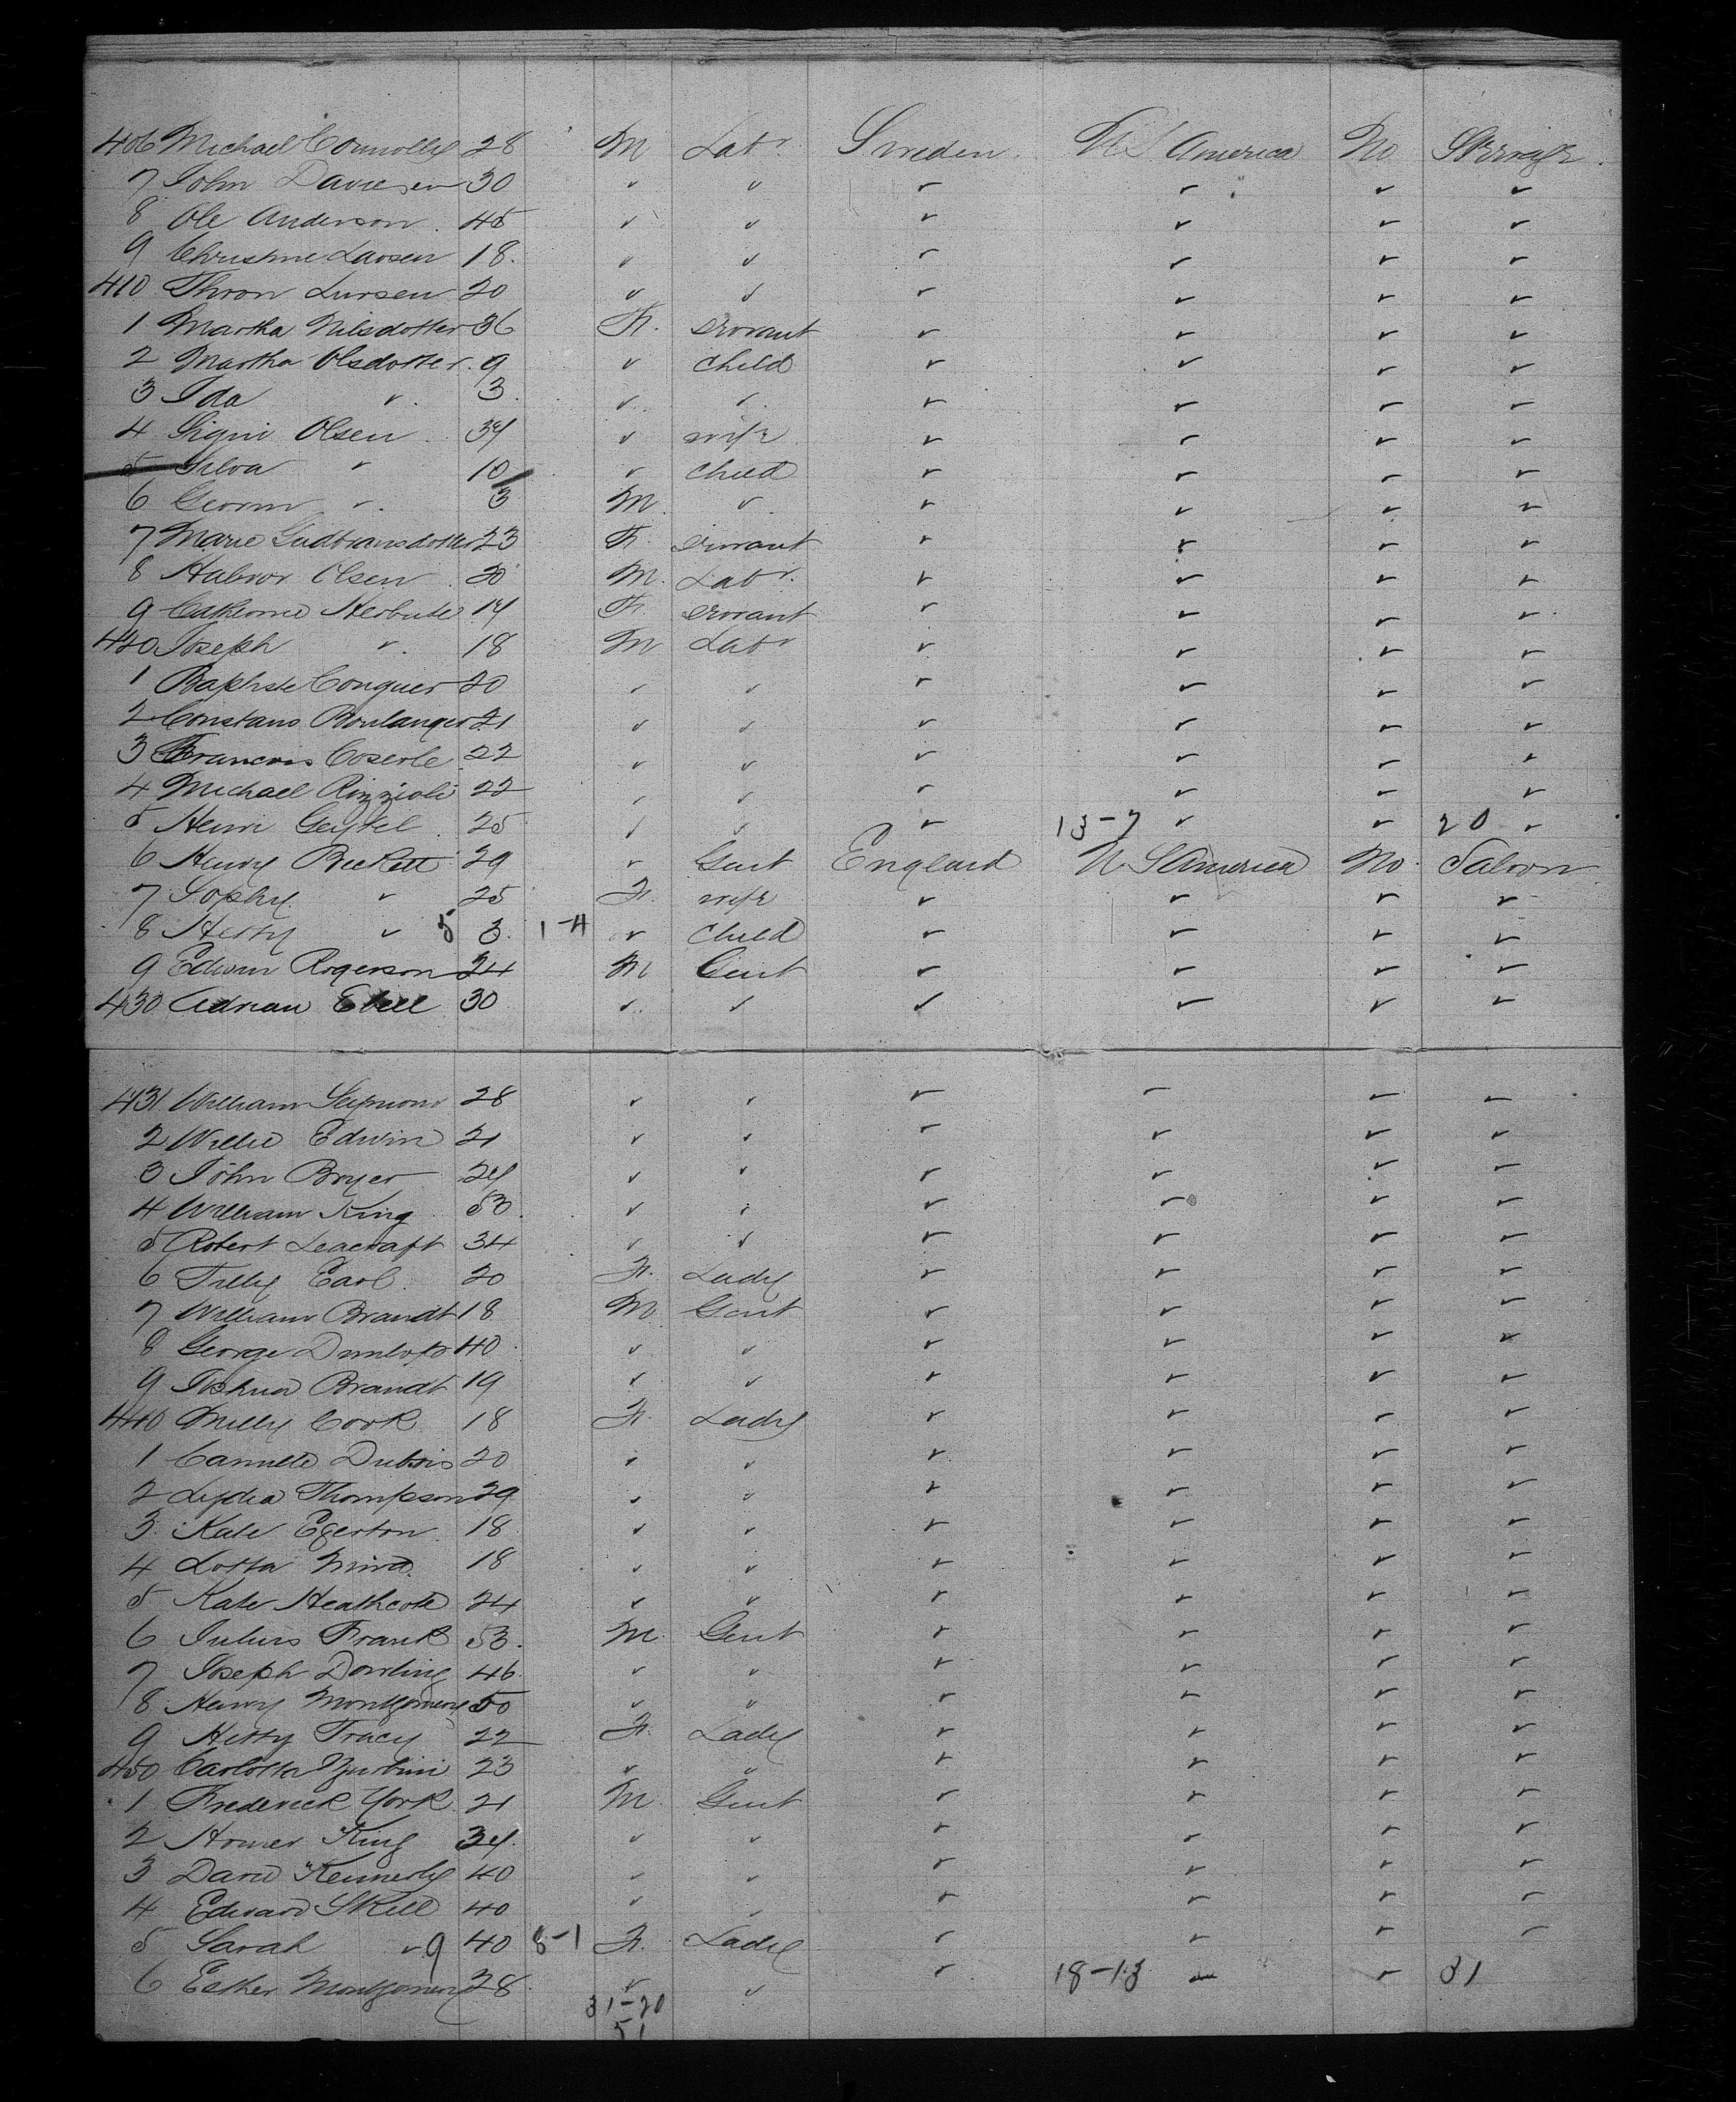 406 Michael Connolly 28 M Labr. Sweden. U S America No Steerage.
7 John Daviesen 30 " " " " " "
8 Ole Anderson. 45 " " " " " "
9 Christine Larsen 18. " " " " " "
410 Thron Larsen 20 " " " " " "
1 Martha Nilsdotter 36 F. servant " " " "
2 Martha Olsdotter. 9 " child " " " "
3 Ida " 3. " " " " " "
4 Signi Olsen. 34 " wife " " " "
5 Silva " 10 " child " " " "
6 " 3 M. " " " " "
7 Marie Gudbransdotter 23 F. servant " " " "
8 Halvor Olsen. 20 M. Labr. " " " "
9 Catherine 14 F. servant " " " "
420 Joseph " 18 M Labr " " " "
1 Baptiste Conquer 20 " " " " " "
2 Constans Boulanger 21 " " " " " "
3 Francois 22 " " " " " "
4 Michael Rizzioli 22 " " " " " "
5 Henri 25 " " " 13-7 " " 20 "
6 Henry Beckett 29 " Gent England U S America No. Saloon.
7 Sophy " 25 F. wife " " " "
8 Hetty " 5 3. 1-4 " child " " " "
9 Edwin Rogerson 24 M Gent " " " "
430 Adrian 30 " " " " " "
431 William Seymour 28 " " " " " "
2 Willie Edwin 21 " " " " " "
3 John Bryer 24 " " " " " "
4 William King 53. " " " " " "
5 Robert Leacraft 34 " " " " " "
6 Tilly Earl. 20 F. Lady " " " "
7 William Brandt 18 M. Gent " " " "
8 George Dunlop 40. " " " " " "
9 Joshua Brandt 19 " " " " " "
440 Milly Cook 18 F. Lady " " " "
1 Camille Dubois 20 " " " " " "
2 Lydia Thompson 29 " " " " " "
3. Kate Egerton. 18 " " " " " "
4 Lotta Mira. 18 " " " " " "
5 Kate Heathcote 24 " " " " " "
6 Julius Frank 53. M. Gent " " " "
7 Joseph Dowling 46. " " " " " "
8 Henry Montgomery 50 " " " " " "
9 Hetty Tracy 22 F. Lady " " " "
450 Carlotta Zerbini 23 " " " " " "
1 Frederick York. 21 M. Gent " " " "
2 Homer King 34. " " " " " "
3 David Kennedy 40 " " " " " "
4 Edward Skill 40 " " " " " "
5 Sarah " 9 40 8-1 F. Lady " " " "
6 Esther Montgomery 28. " " " 18-13 " " 31
31-20
51